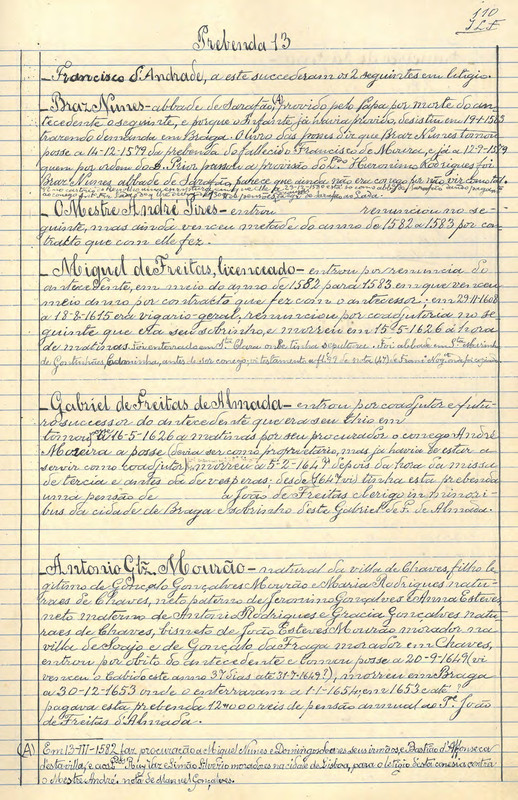 110
Prebenda 13
Francisco d'Andrade, a este succederam os 2 seguintes em litigio.
Braz Nunes - abbade de Sarafão, (A) provido pelo Papa por morte do an-
tecedente o seguinte, e porque o Infante já havia provido, desistiu em 19-1-1583
trazendo demanda em Braga. O livro das posses diz que Braz Nunes tomou
posse a 14-12-1579 da prebenda do fallecido Francisco de Moreira, e já a 12-9-1579
quem por ordem do D. Prior passou a provisão do Hieronimo Rodrigues foi
Braz Nunes abbade de Sarafão, parece que ainda não era conego por não vir
O Mestre André Pires - entrou renunciou no se-
guinte, mas ainda venceu metade do anno de 1582 a 1583 por con-
tracto que com elle fez.
Miguel de Freitas, licenceado - entrou por renuncia do
antecedente, em meio do anno de 1582 para 1583 em que venceu
meio anno por contracto que fez com o antecessor; em 29-11-1608
a 18-8-1615 era vigario-geral, renunciou por coadjutoria no se-
guinte que era seu sobrinho, e morreu em 15-5-1626 á hora
de matinas. Foi enterrado em Sta. Clara onde tinha sepultura. Foi abbade em Sta. Marinha
de antes de ser conego, vi testamento a fl. de nota (47) de
Gabriel de Freitas de Almada - entrou por coadjutor e futu-
ro successor do antecedente que era seu thio em
tomou a 16-5-1626 a matinas por seu procurador o conego André
Moreira a posse (devia ser como proprietario, mas já havia de estar a
servir como coadjutor) morreu a 5-2-1649 depois da hora da missa
de tercia e antes da de vesperas; desde 1641 tinha esta prebenda
uma pensão de a João de Freitas clerigo in minori-
bus da cidade de Braga e sobrinho deste Gabriel de F. de Almada.
Antonio Glz. Mourão - natural da villa de Chaves, filho le-
gitimo de Gonçalo Gonçalves Mourão e Maria Rodrigues natu-
raes de Chaves, neto paterno de Jeronimo Gonçalves e Anna Esteves,
neto materno de Antonio Rodrigues e Gracia Gonçalves natu-
raes de Chaves, bisneto de João Esteves Mourão morador na
villa de Soajo e de Gonçalo da Fraga morador em Chaves,
entrou por obito do antecedente e tomou posse a 20-9-1649 (vi
venceu o Cabido este anno 37 dias até 31-7-1649?), morreu em Braga
a 30-12-1653 onde o enterraram a 1-1-1654, em 1653 e até
pagava esta prebenda 12$000 reis de pensão annual ao Pe. João
de Freitas d'Almada.
(A) Em 13-III-1582 faz procuração a Miguel Nunes e Domingos Soares seus irmãos, e Bastião d'Affonseca
desta villa, e a Ruy Vaz e Simão moradores na cidade de Lisboa, para o letigio desta canesia contra
o Mestre André, nota de Manuel Gonçalves.